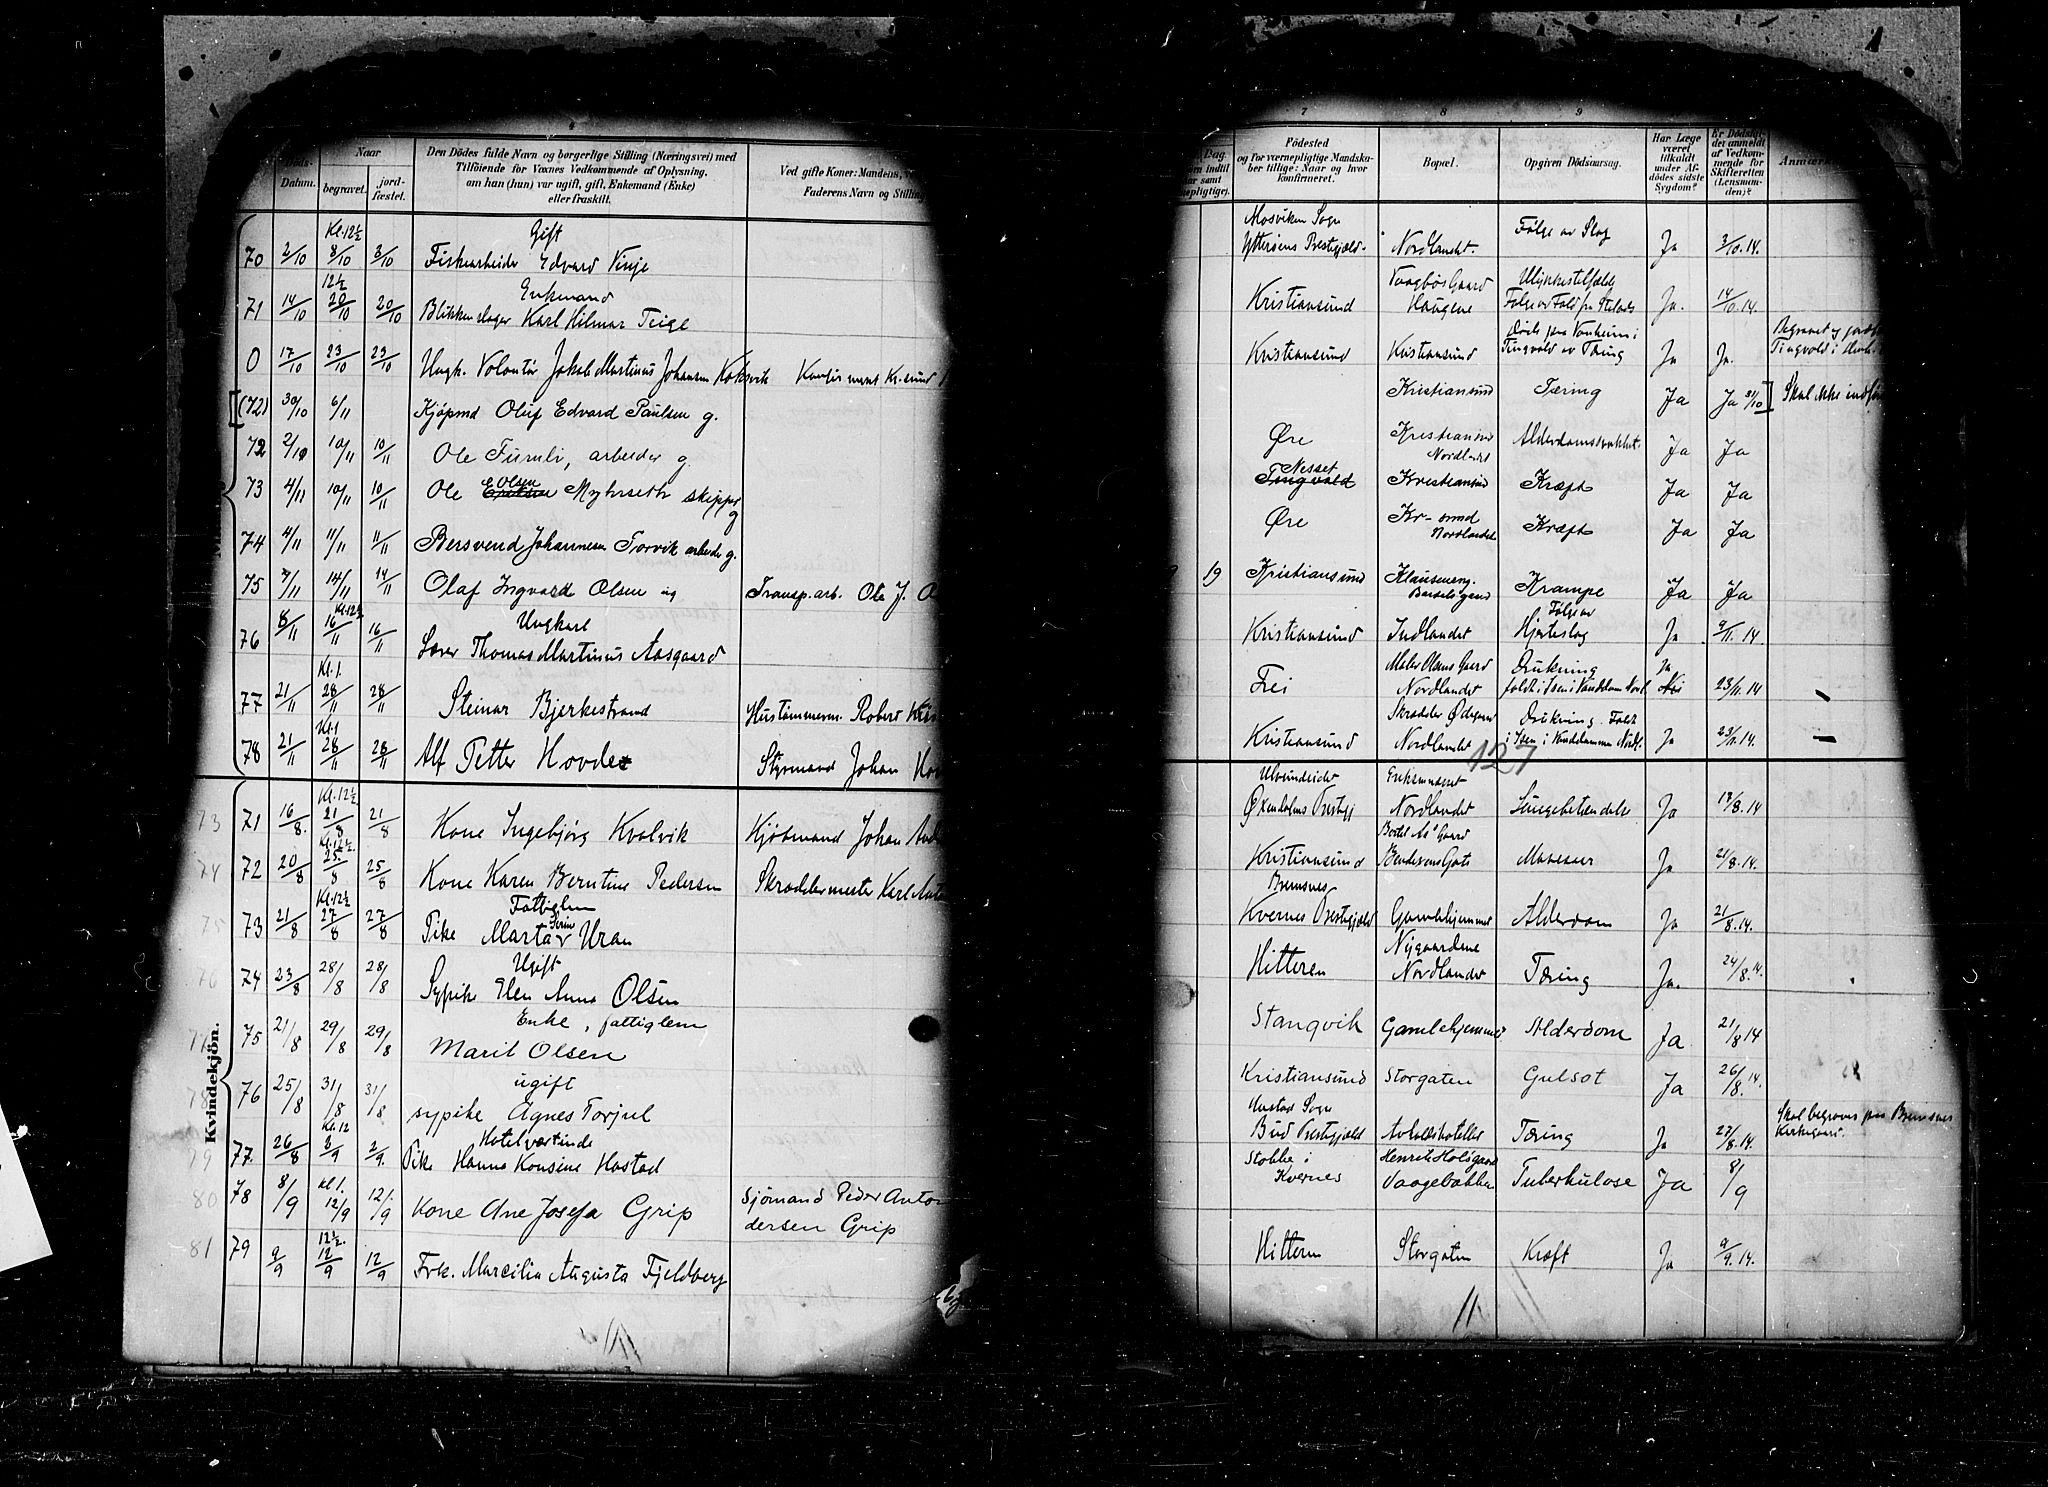 4
Naar
Döds-
Datum.
begravet.
jord-
fæstet.
Den Dödes fulde Navn og borgerlige Stilling (Næringsvei) med
Tilföiende for Voxnes Vedkommende af Oplysning,
om han (hun) var ugift, gift, Enkemand (Enke)
eller fraskilt.
Ved gifte Koner: Mandens,
Faderens Navn og Stilling
70 2/10 Kl. 12½ 8/10 3/10 Gift
Fiskearbeider Edvard Vinje
71 14/10 12½ 20/10 20/10 Enkemand
Blikkenslager Karl Hilmar Teige
0 17/10 23/10 23/10 Ungk. Volontør Jakob Martinus Johansen Koksvik Konfirmeret Kr.sund
[(72) 30/10 6/11 Kjöpmd Oluf Edvard Paulsen g.
72 2/10 10/11 10/11 Ole Furuli, arbeider g.
73 4/11 10/11 10/11 Ole Olsen Myhrseth skipper g
74 4/11 11/11 11/11 Bersvend Johannesen Torvik arbeider g.
75 7/11 14/11 14/11 Olaf Ingvard Olsen ug Transp.arb. Ole J.
76 8/11 Kl. 12½ 16/11 16/11 Ungkarl
Lærer Thomas Martinus Aasgaard
77 21/11 Kl. 1. 28/11 28/11 Steinar Bjerkestrand Hustømmerm. Robert
78 21/11 Kl. 1 28/11 28/11 Alf Petter Hovde Styrmand Johan
Kvindekjön.
73 71 16/8 Kl. 12½ 21/8 21/8 Kone Ingebjørg Kvalvik Kjøbmand Johan
74 72 20/8 Kl. 12½ 25/8 25/8 Kone Karen Berntine Pedersen Skræddermester Karl
75 73 21/8 Kl. 12½ 27/8 27/8 Fattiglem
Pike Marta Serine Uran
76 74 23/8 28/8 28/8 Ugift
Sypike Elen Anna Olsen
77 75 21/8 29/8 29/8 Enke, fattiglem
Marit Olsen
78 76 25/8 31/8 31/8 ugift
sypike Agnes Torjul
79 77. 26/8 Kl. 12 2/9 2/9. Hotelværtinde
Pike Hanna Konsine Hastad
80 78 8/9 Kl. 1. 12/9 12/9 Kone Ane Josefa Grip Sjömand Peder Anto
dersen Grip
81 79 9/9 12½. 12/9 12/9 Frk. Marcilia Augusta Fjeldberg
7
8
9
Dag
Födested
og for værnepligtige Mandska-
ber tillige: Naar og hvor
konfirmeret.
Bopæl.
Opgiven Dödsaarsag.
Har Læge
været
tilkaldt
under Af-
dödes sidste
Sygdom?
Er Dödsfal-
det anmeldt
af Vedkom-
mende for
Skifteretten
(Lensman-
den)?
Anmærk
Mosviken Sogn
Ytterøens Prestegjeld. Nordlandet. Følge av Slag Ja 3/10.14.
Kristiansund Vaagbøs Gaard
Haugene Ulykkestilfælde
Følge av Fald fra Stelads Ja. 14/10.14.
Kristiansund Kristiansund
Tingvold av Tæring Ja Ja. Begravet og
Tingvold i
Kristiansund Tæring Ja Ja 31/10] Skal ikke
Øre Kristiansund
Nordlandet Alderdomssvakhet. Ja Ja
Nesset
Tingvold Kristiansund Kræft Ja Ja
Øre Kr-sund
Nordlandet Kræft Ja Ja
19 Kristiansund Klauseneng. Krampe Ja Ja
Kristiansund Indlandet Følge av
Hjerteslag Ja 9/11.14
Frei Maler Olsens Gaard
Nordlandet Drukning
faldt i Isen i Vanddam Nordl. Ja
Nei 23/11.14
Kristiansund Skrædder Ødegaard
Nordlandet Drukning. Faldt
i Isen i Vanddammen Nordl. Ja 23/11.14.
127
Ulvundeidet
Øxendalens Prestegj Enkemand
Nordlandet Lungebetændelse Ja 17/8.14
Kristiansund Bertel Aas Gaard
Bendixens Gate Ja 21/8.14.
Bremsnes
Kvernes Prestegjeld Gamlehjemmet Alderdom Ja 21/8.14.
Hitteren Nygaardene
Nordlandet Tæring Ja. 24/8.14.
Stangvik Gamlehjemmet Alderdom Ja 21/8 14
Kristiansund Storgaten Gulsot Ja 26/8 14.
Hustad Sogn
Bud Prestegjeld Avholdshotellet Tæring Ja 27/8.14. Skal begraves paa Bremsnes
Kirkegaard.
Stobbe i
Kvernes
Vaagebakken Tuberkulose Ja 8/9
Hitteren Storgaten Kræft Ja 9/9.14.
11